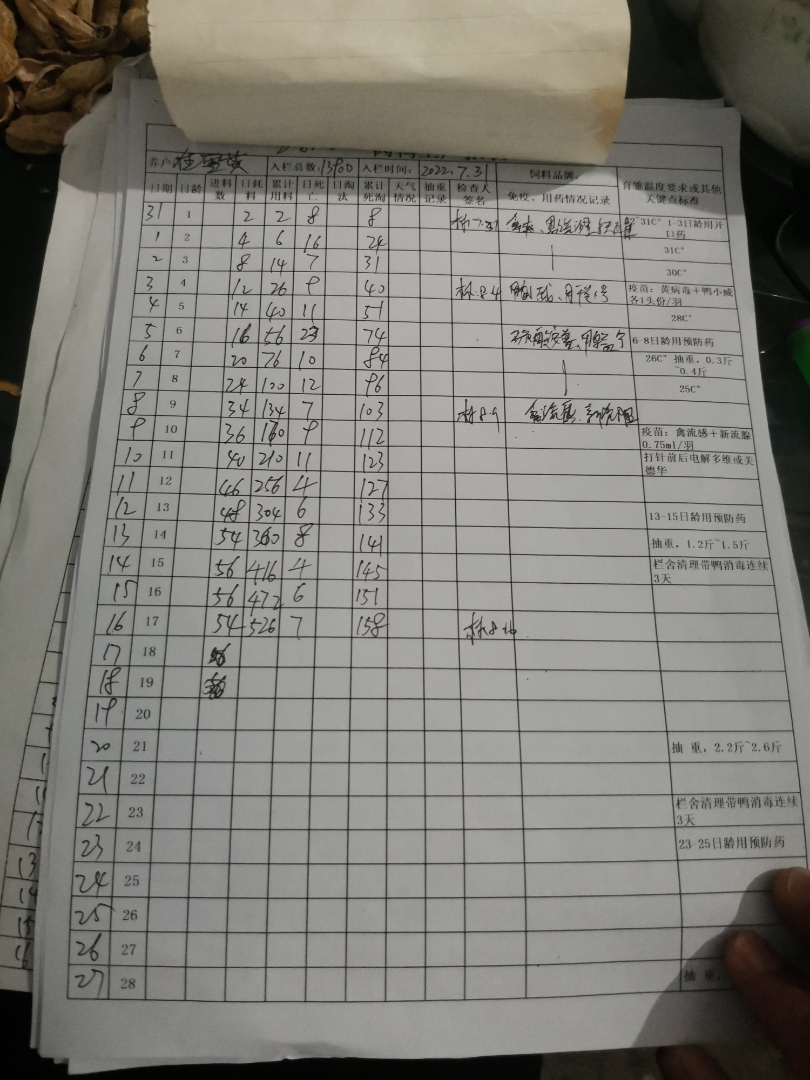 养户 入栏总数:13900 入栏时间:2022.7.31 饲料品牌: 育雏温度要求或其他关键点标准
日期 日龄 进料数 日耗料 累计用料 日死亡 日淘汰 累计死淘 天气情况 抽重记录 检查人签名 免疫、用药情况记录
31 1 2 2 8 8 林7.31 31C° 1-3日龄用开口药
1 2 4 6 16 24 31C°
2 3 8 14 7 31 30C°
3 4 12 26 9 40 林8.4 疫苗:黄病毒+鸭小减各1头份/羽
4 5 14 40 11 51 28C°
5 6 16 56 23 74 6-8日龄用预防药
6 7 20 76 10 84 26C° 抽重,0.3斤~0.4斤
7 8 24 100 12 96 25C°
8 9 34 134 7 103 林8.9
9 10 36 170 9 112 疫苗:禽流感+新流腺0.75ml/羽
10 11 40 210 11 123 打针前后电解多维或美德华
11 12 46 256 4 127
12 13 48 304 6 133 13-15日龄用预防药
13 14 54 360 8 141 抽重,1.2斤~1.5斤
14 15 56 416 4 145 栏舍清理带鸭消毒连续3天
15 16 56 472 6 151
16 17 54 526 7 158 林8.16
17 18
18 19
19 20
20 21 抽 重,2.2斤~2.6斤
21 22
22 23 栏舍清理带鸭消毒连续3天
23 24 23-25日龄用预防药
24 25
25 26
26 27
27 28 抽 重,